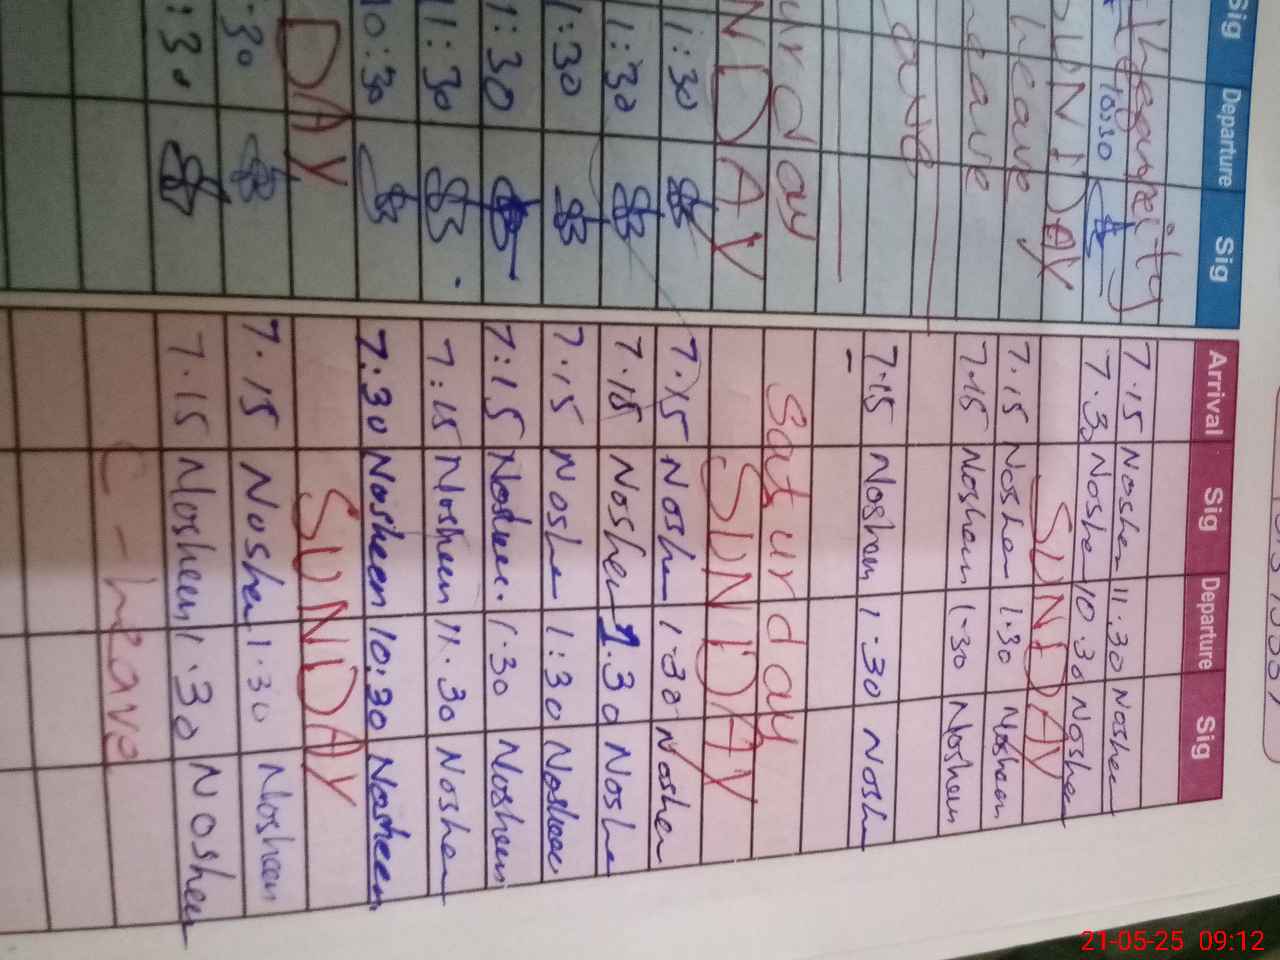 Sig Departure Sig Arrival Sig Departure Sig
7.15 Nosheen 11.30 Nosheen
10:30 7.30 Nosheen 10.30 Nosheen
SUNDAY SUNDAY
leave 7.15 Nosheen 1.30 Nosheen
leave 7.15 Nosheen 1-30 Nosheen
7.15 Nosheen 1.30 Noshe
urday Saturday
NDAY SUNDAY
1:30 7.15 Noshen 1.30 Noshen
1:30 7.15 Noshen 1.30 Noshe
1:30 7.15 Noshe 1:30 Nosheen
1:30 7:15 Nosheen. 1.30 Nosheen
11:30 7:15 Nosheen 11.30 Noshen
10:30 7:30 Nosheen 10:30 Nosheen
DAY SUNDAY
:30 7.15 Noshen 1.30 Nosheen
:30 7.15 Nosheen 1.30 Noshen
C-leave
21-05-25 09:12